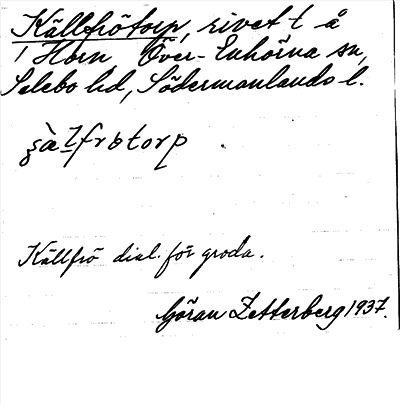 Källfrötorp, rivet t å
i Horn, Över-Enhörna sn,
Selebo hd, Södermanlands l.
Källfrö dial. för groda.
Göran Zetterberg 1937.